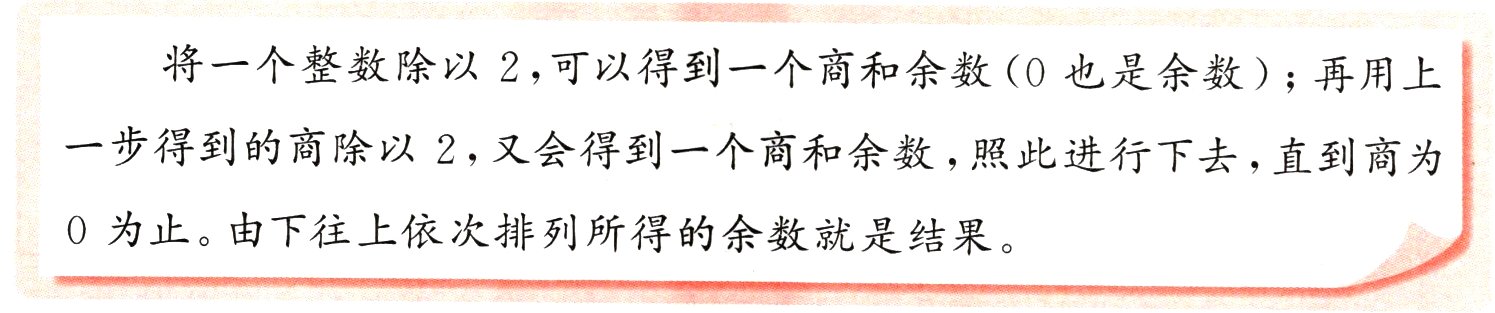 将一个整数除以 2,可以得到一个商和余数(0 也是余数);再用上
一步得到的商除以 2,又会得到一个商和余数,照此进行下去,直到商为
0 为止。由下往上依次排列所得的余数就是结果。